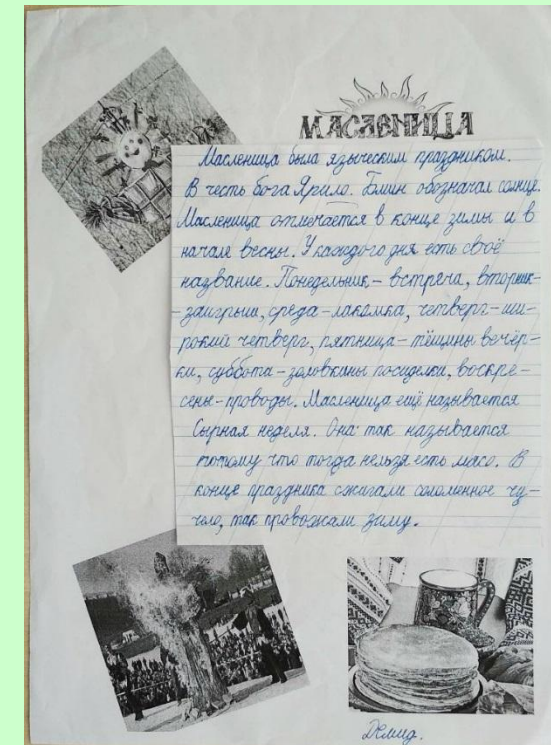 МАСЛЕНИЦА
Масленица была языческим праздником.
В честь бога Ярило. Блин обозначал солнце.
Масленица отмечается в конце зимы и в
начале весны. У каждого дня есть своё
название. Понедельник - встреча, вторник-
-заигрыш, среда - лакомка, четверг - ши-
рокий четверг, пятница - тёщины вечёр-
ки, суббота - золовкины посиделки, воскре-
сенье - проводы. Масленица ещё называется
Сырная неделя. Она так называется
потому что тогда нельзя есть мясо. В
конце праздника сжигали соломенное чу-
чело, так провожали зиму.
Демид.